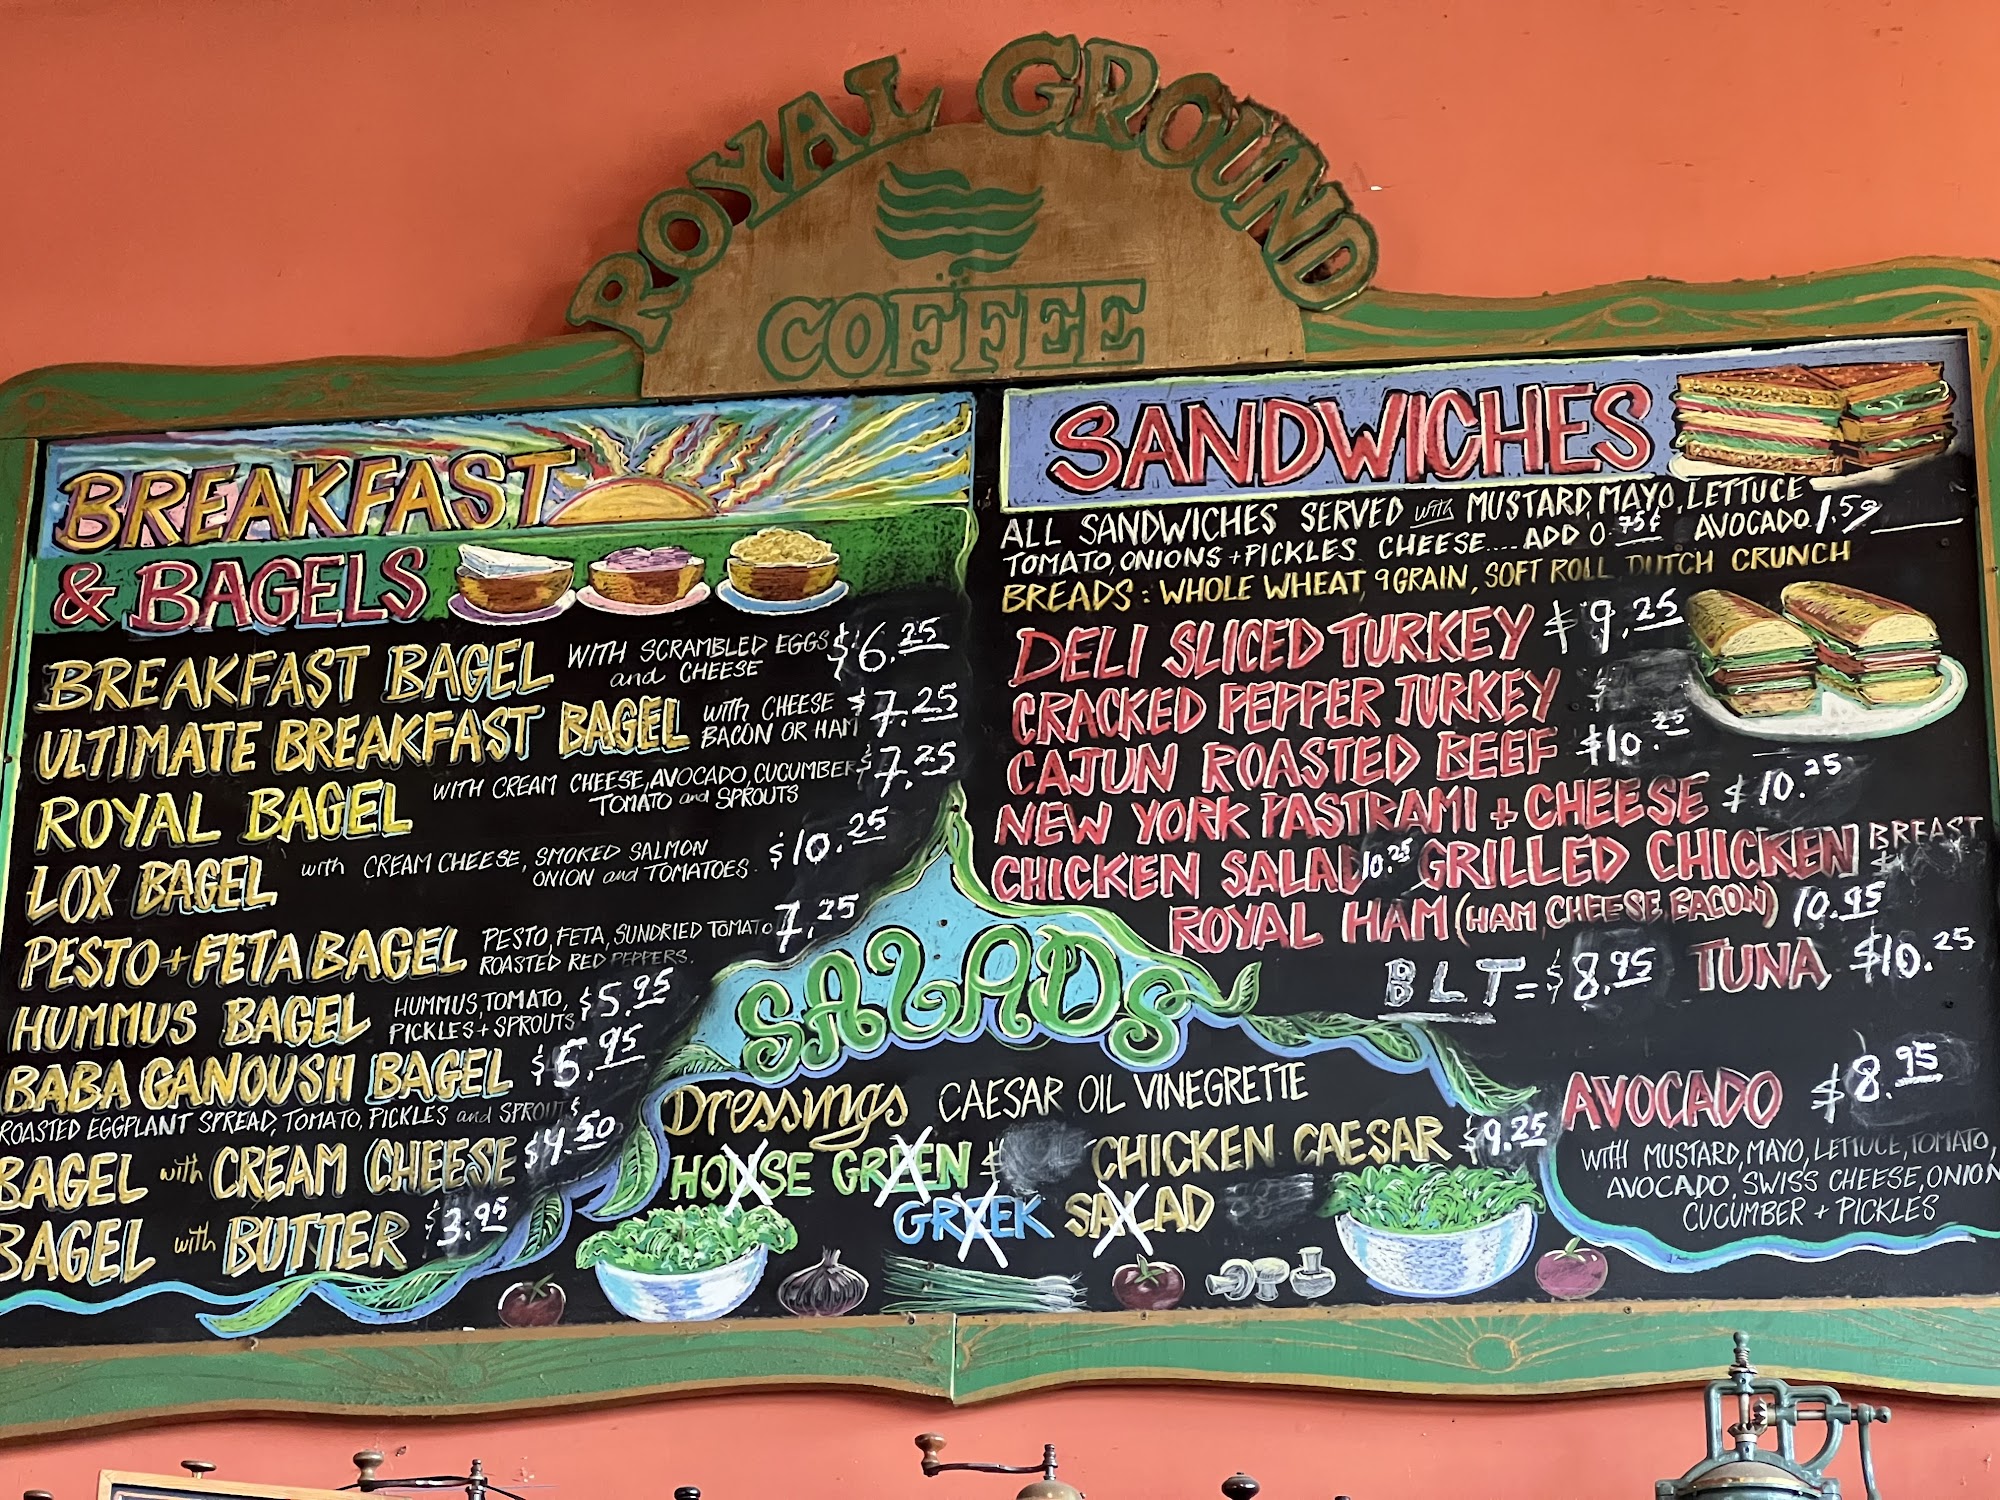 ROYAL GROUND
COFFEE
BREAKFAST
& BAGELS
BREAKFAST BAGEL WITH SCRAMBLED EGGS $6.25
and CHEESE
ULTIMATE BREAKFAST BAGEL with CHEESE $7.25
BACON OR HAM
ROYAL BAGEL WITH CREAM CHEESE, AVOCADO, CUCUMBER $7.25
TOMATO and SPROUTS
LOX BAGEL with CREAM CHEESE, SMOKED SALMON $10.25
ONION and TOMATOES.
PESTO + FETA BAGEL PESTO, FETA, SUNDRIED TOMATO 7.25
ROASTED RED PEPPERS.
HUMMUS BAGEL HUMMUS, TOMATO, $5.95
PICKLES + SPROUTS
BABA GANOUSH BAGEL $5.95
ROASTED EGGPLANT SPREAD, TOMATO, PICKLES and SPROUTS
BAGEL with CREAM CHEESE $4.50
BAGEL with BUTTER $3.95
SANDWICHES
ALL SANDWICHES SERVED with MUSTARD, MAYO, LETTUCE
TOMATO, ONIONS + PICKLES. CHEESE.... ADD 0.75¢ AVOCADO 1.50
BREADS: WHOLE WHEAT, 9 GRAIN, SOFT ROLL, DUTCH CRUNCH
DELI SLICED TURKEY $9.25
CRACKED PEPPER TURKEY
CAJUN ROASTED BEEF $10.25
NEW YORK PASTRAMI + CHEESE $10.25
CHICKEN SALAD 10.25 GRILLED CHICKEN BREAST
ROYAL HAM (HAM, CHEESE, BACON) 10.95
BLT = $8.95 TUNA $10.25
AVOCADO $8.95
WITH MUSTARD, MAYO, LETTUCE, TOMATO,
AVOCADO, SWISS CHEESE, ONION
CUCUMBER + PICKLES
SALADS
Dressings CAESAR OIL VINEGRETTE
HOUSE GREEN $ CHICKEN CAESAR $9.25
GREEK SALAD